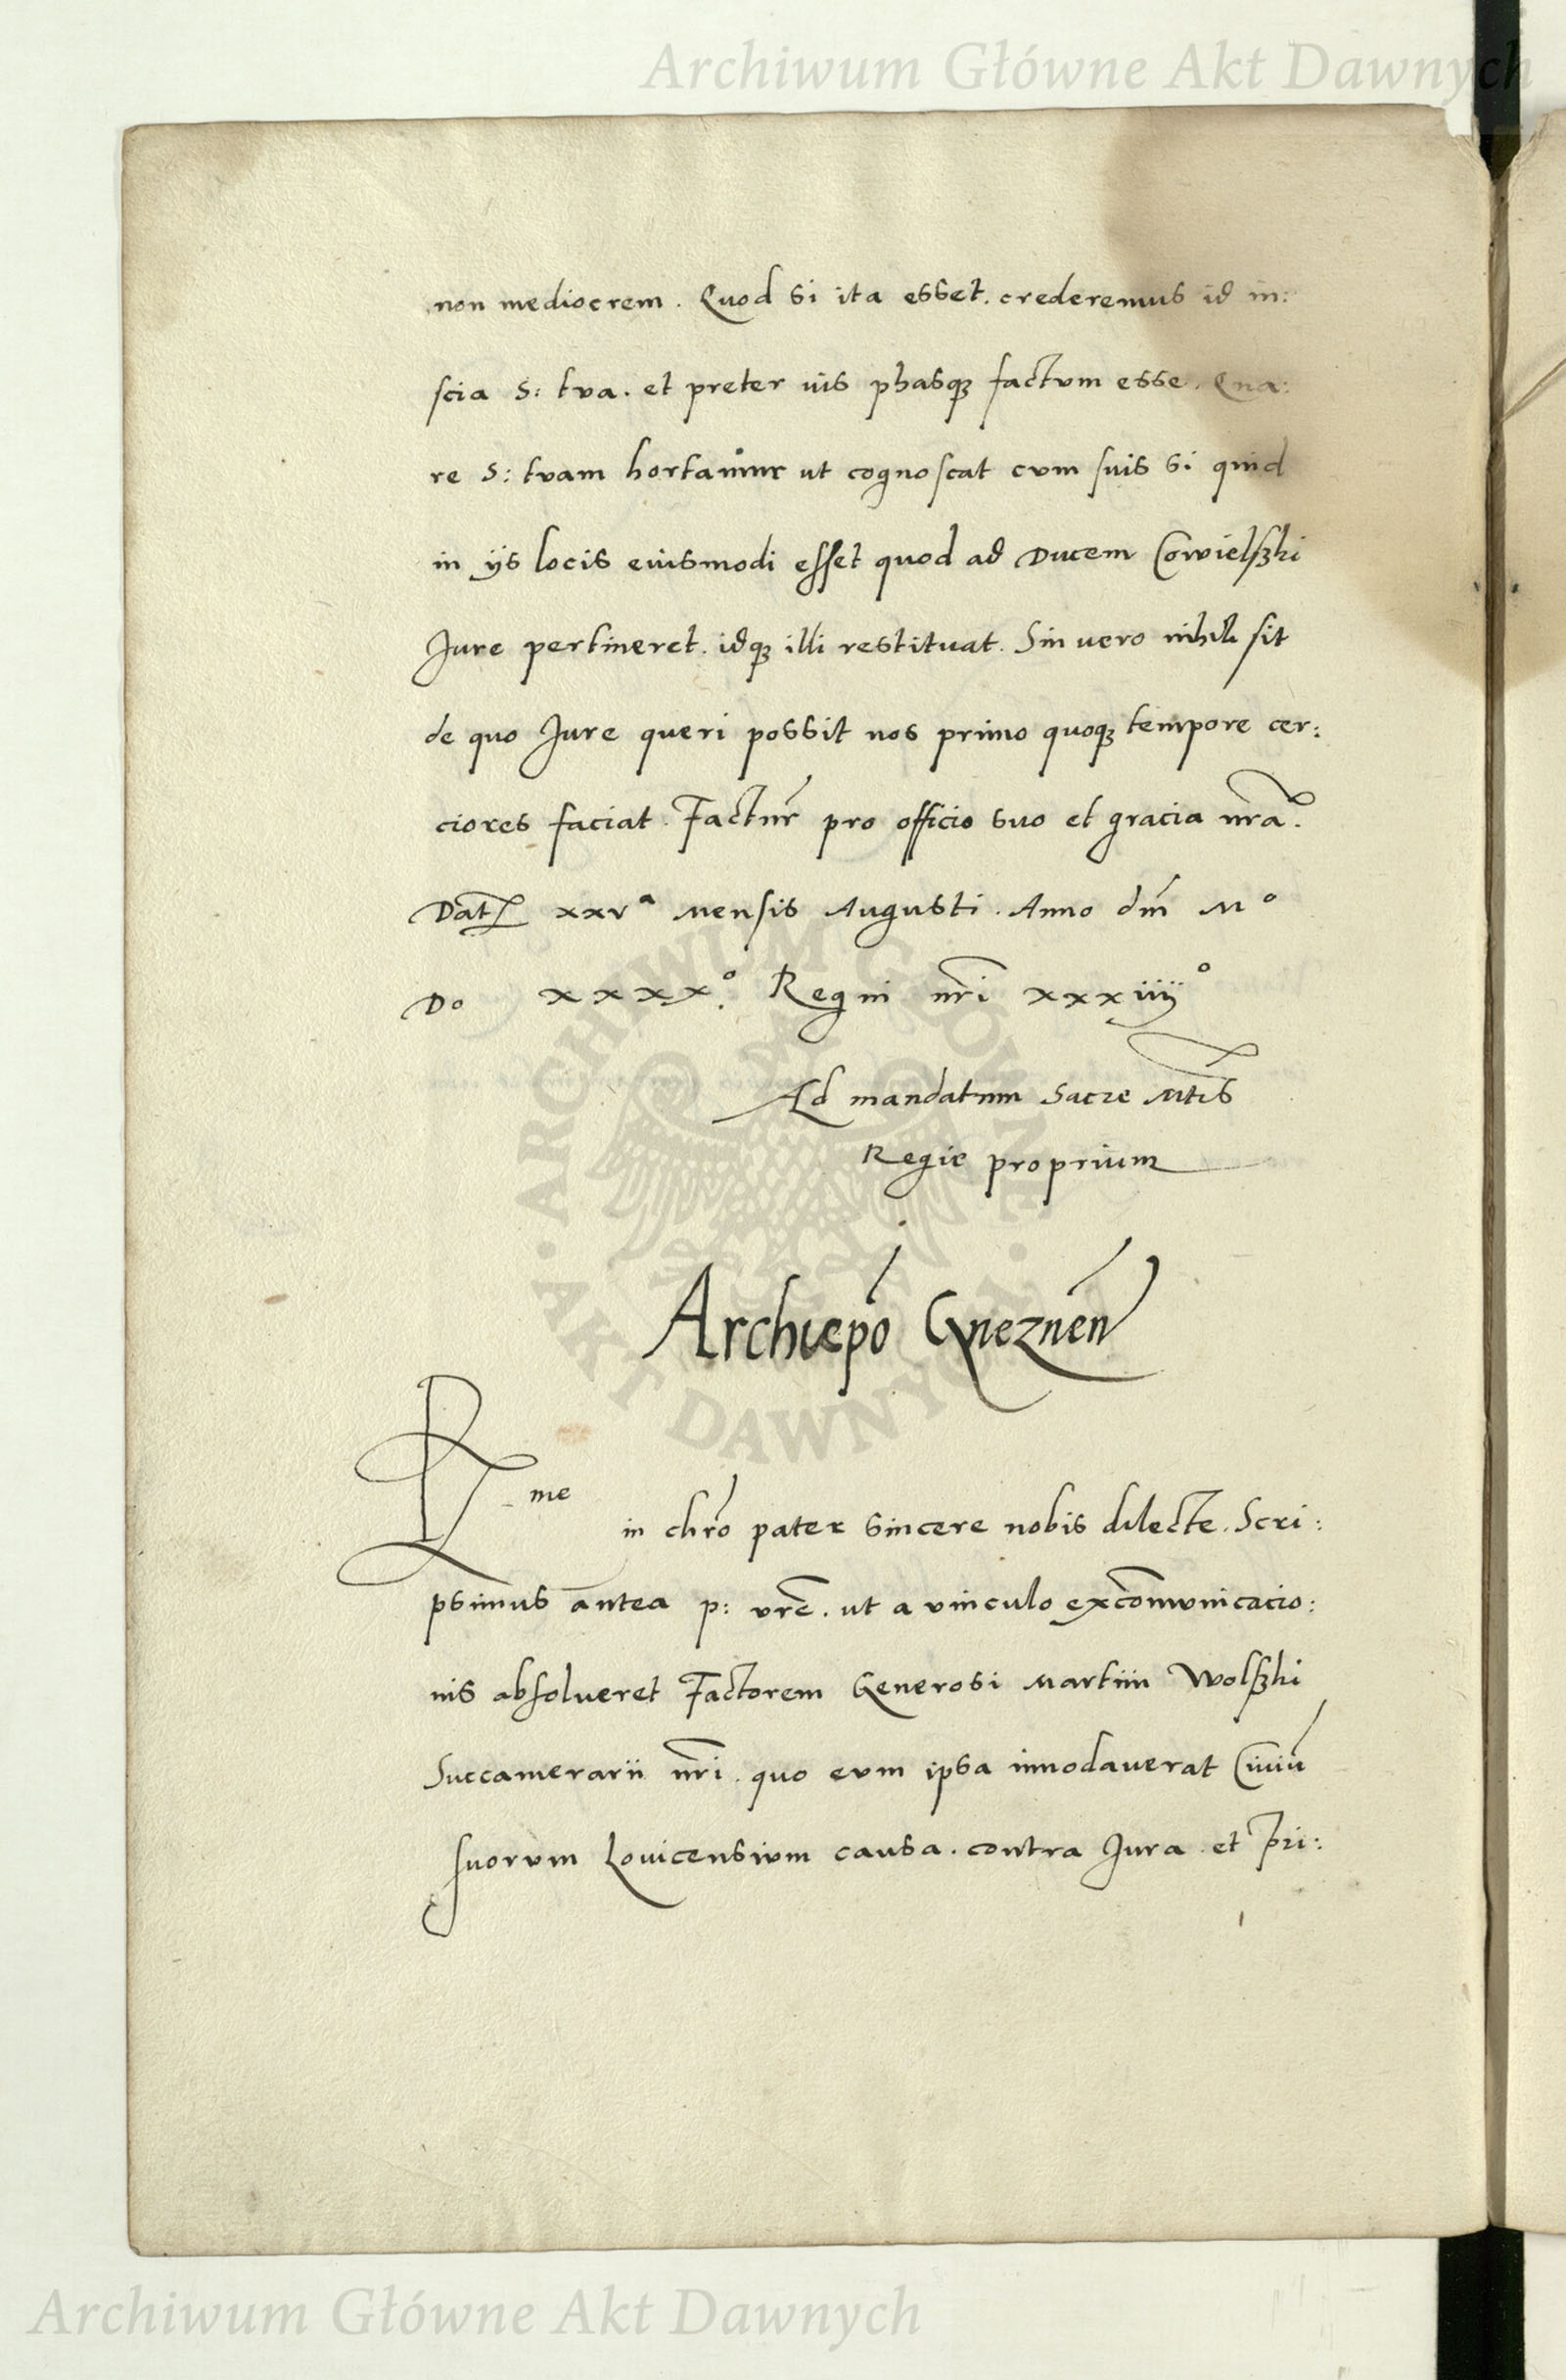 Archiwum Główne Akt Dawnych
non mediocrem. Quod si ita esset. crederemus id in:
scia S: tua. et preter ius phasqꝫ factum esse. Qua:
re S: tuam hortamur ut cognoscat cum suis si quid
in ijs locis eiusmodi esset quod ad Ducem Cowielsʒki
Jure pertineret. idqꝫ illi restituat. Sin vero nihil sit
de quo Jure queri possit nos primo quoqꝫ tempore cer:
ciores faciat. Factur̃ pro officio suo et gracia nr̃a.
Dat xxvᵃ Mensis Augusti. Anno dm̃ Mº
Do xxxxº. Regni nr̃i xxxiiijº
Ad mandatum Sacre Mtis
Regie proprium
ARCHIWUM GŁÓWNE AKT DAWNYCH
Archiepõ Gneznen̄
Rme in chr̃o pater sincere nobis dilecte. Scri:
psimus antea p: vr̃e. ut a vinculo excom̃unicacio:
nis absolueret Factorem Generosi Martini Wolsʒki
Succamerarii nr̃i. quo eum ipsa innodauerat Ciuiũ
suorum Louicensium causa. contra Jura et Pri:
Archiwum Główne Akt Dawnych